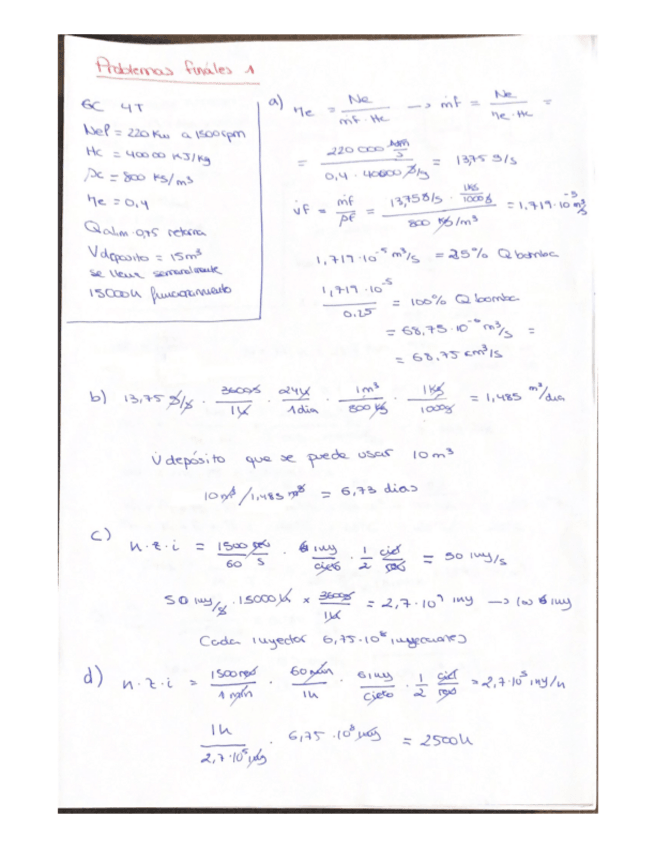 Problemas finales 1
GC 4T
Nef = 220 Kw a 1500 rpm
Hc = 40000 KJ/Kg
ρc = 800 KS/m³
ηe = 0,4
Qalim 0,75 retorna
Vdeposito = 15m³
se llena semanalmente
15000h funcionamiento
a) ηe = Ne / ṁf · Hc → ṁf = Ne / ηe · Hc =
= 220 000 / 0,4 · 40000 g/g = 13,75 g/s
v̇f = ṁf / ρf = 13,75 g/s · 1KG/1000g / 800 KG/m³ = 1,719·10⁻⁵ m³/s
1,719·10⁻⁵ m³/s = 25% Q bomba
1,719·10⁻⁵ / 0,25 = 100% Q bomba
= 68,75·10⁻⁶ m³/s =
= 68,75 cm³/s
b) 13,75 g/s · 3600s/1h · 24h/1dia · 1m³/800 KG · 1KG/1000g = 1,485 m³/dia
Vdepósito que se puede usar 10m³
10m³/1,485 m³ = 6,73 dias
c) n·z·i = 1500 rev/60 s · 6 iny/ciclo · 1/2 cicl/rev = 50 iny/s
50 iny/s · 15000h × 3600s/1h = 2,7·10⁹ iny → los 6 iny
Cada inyector 6,75·10⁸ inyecciones
d) n·z·i = 1500 rev/1 min · 60min/1h · 6 iny/ciclo · 1/2 cicl/rev = 2,7·10⁵ iny/h
1h/2,7·10⁵ iny · 6,75·10⁸ iny = 2500h